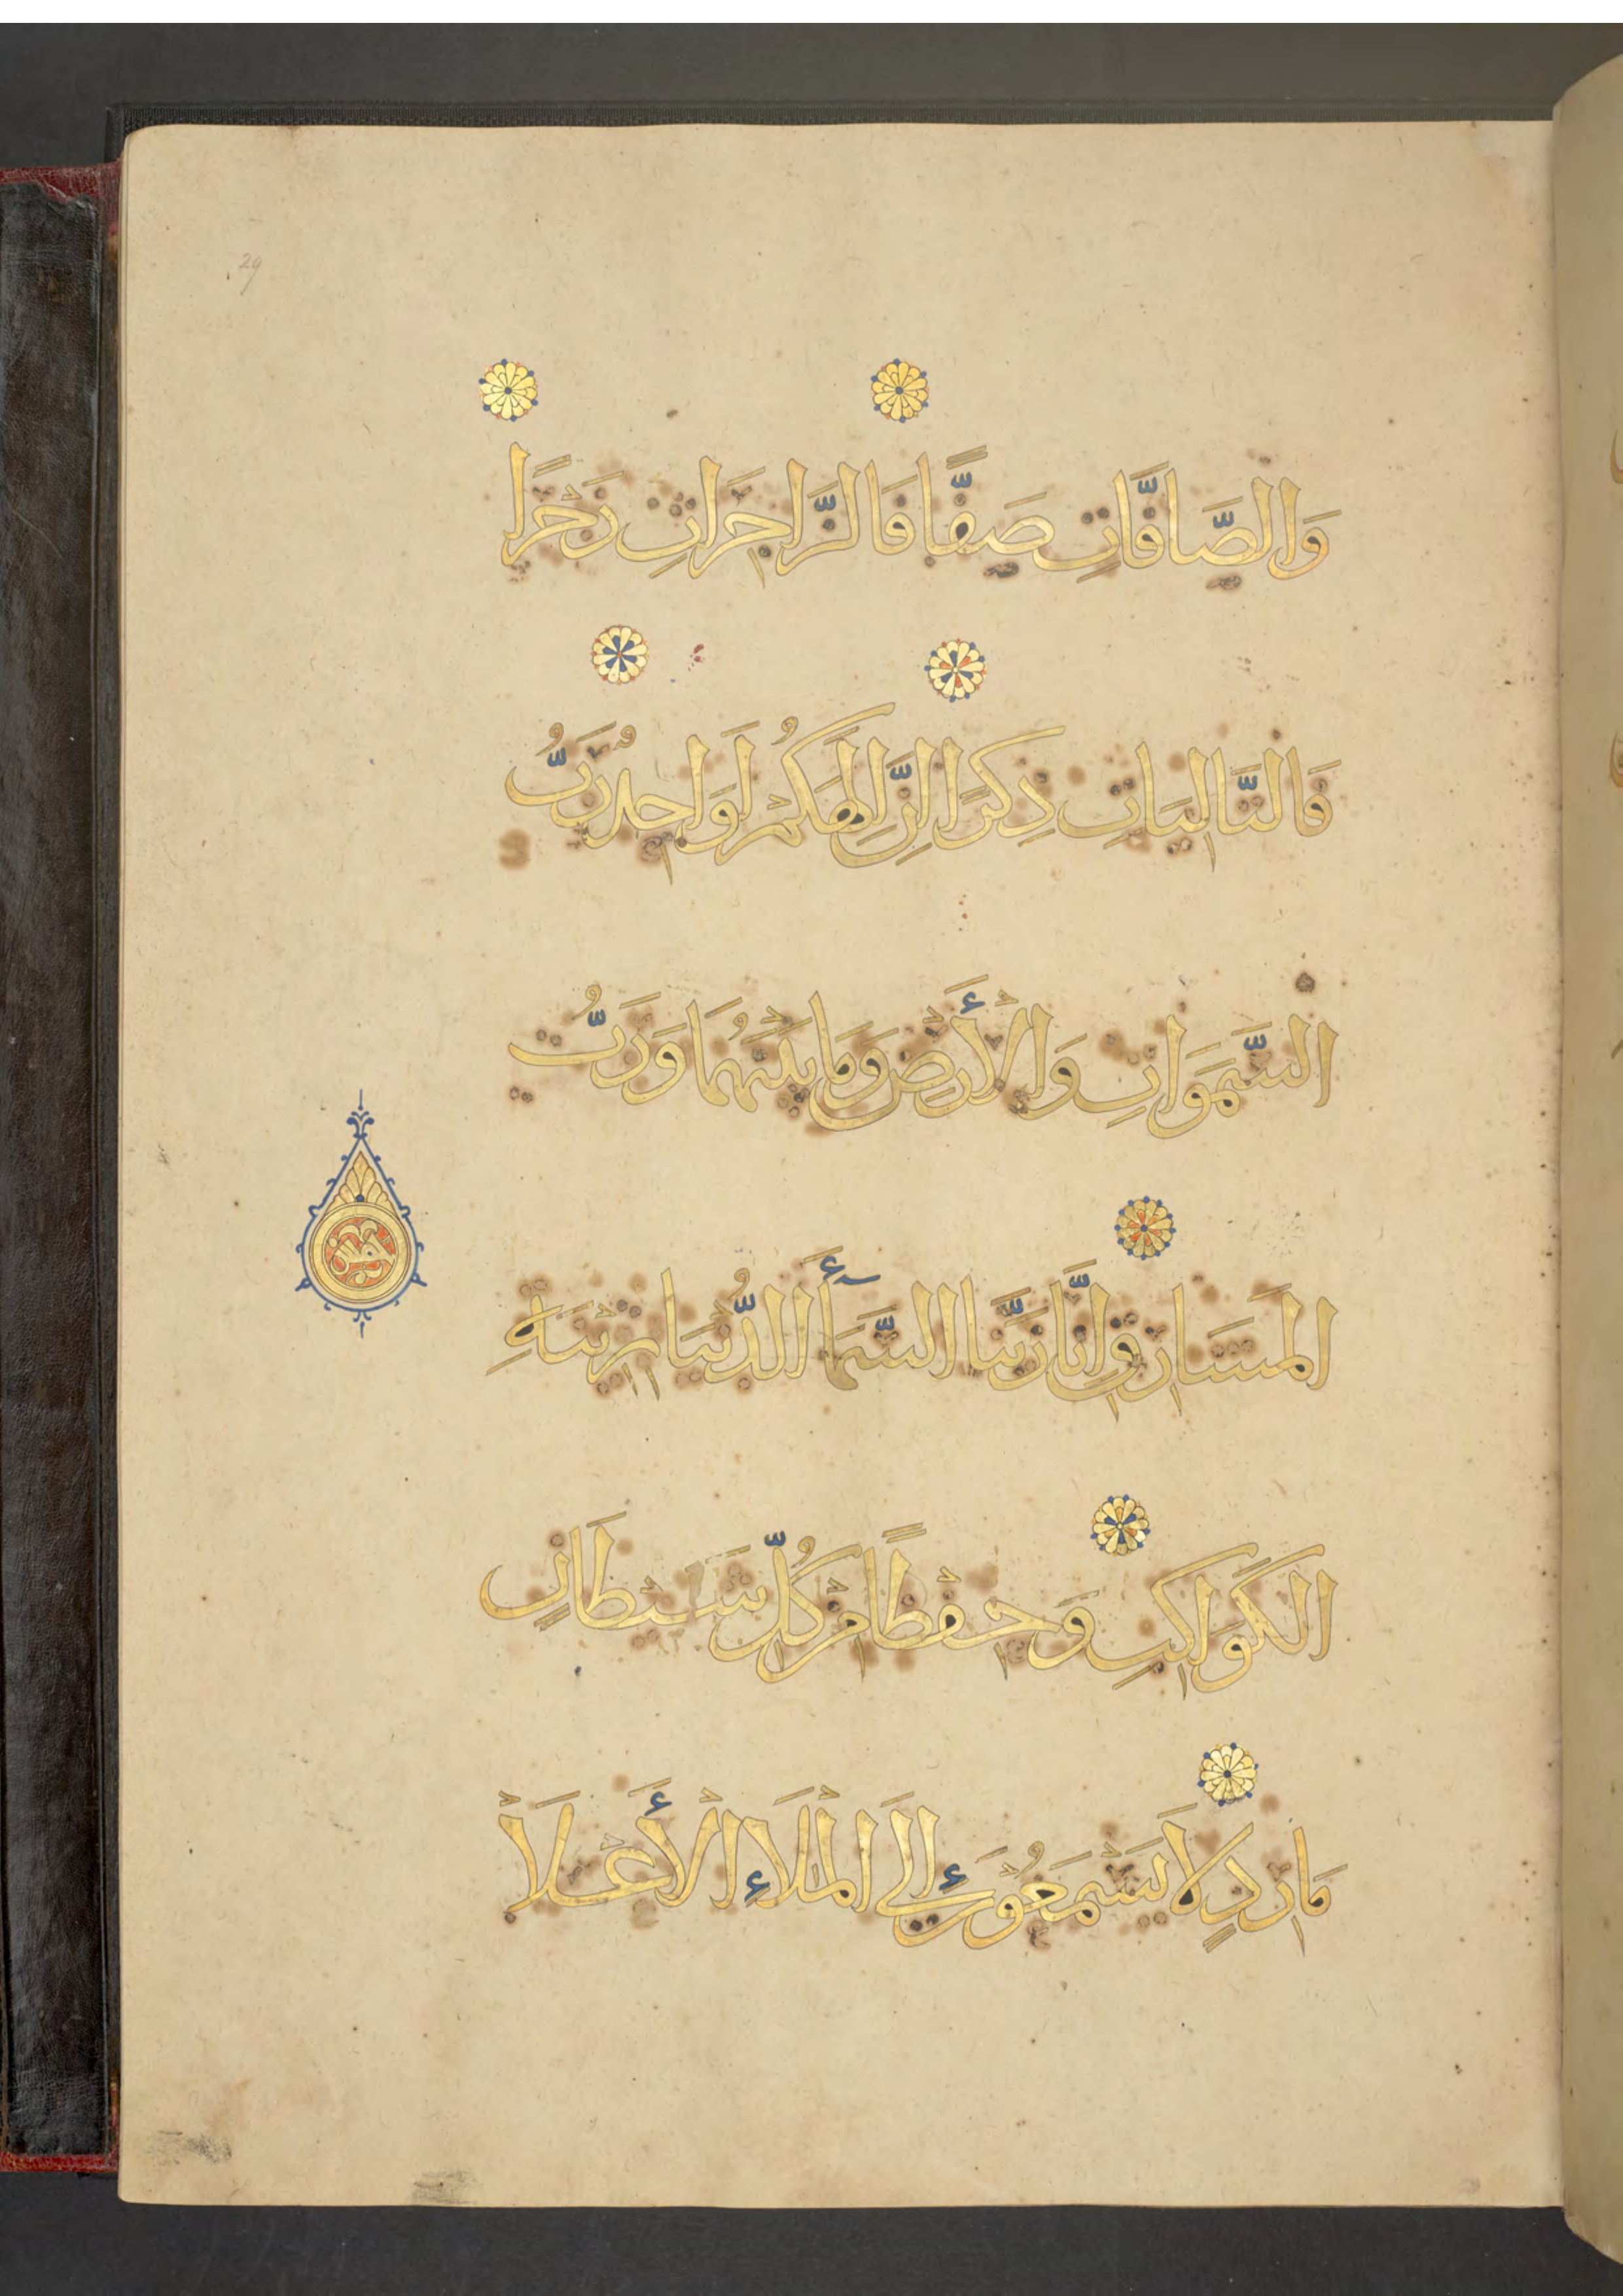 29
وَالصَّافَّاتِ صَفًّا فَالزَّاجِرَاتِ زَجْرًا
فَالتَّالِيَاتِ ذِكْرًا إِنَّ إِلَهَكُمْ لَوَاحِدٌ رَبُّ
السَّمَوَاتِ وَالْأَرْضِ وَمَا بَيْنَهُمَا وَرَبُّ
الْمَشَارِقِ إِنَّا زَيَّنَّا السَّمَآءَ الدُّنْيَا بِزِينَةِ
الْكَوَاكِبِ وَحِفْظًا مِنْ كُلِّ شَيْطَانٍ
مَارِدٍ لَا يَسْمَعُونَ إِلَى الْمَلَاءِ الْأَعْلَا